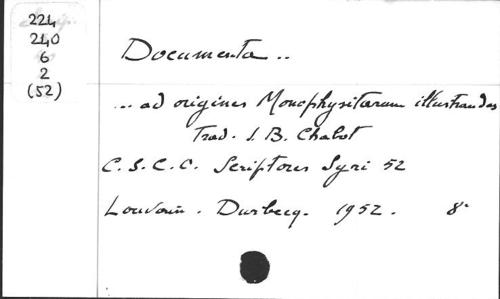 224
240
6
2
(52)
Documenta ..
... ad origines Monophysitarum illustrandas
Trad. J. B. Chabot
C. S. C. O. Scriptores Syri 52
Louvain. Durbecq. 1952. 8°